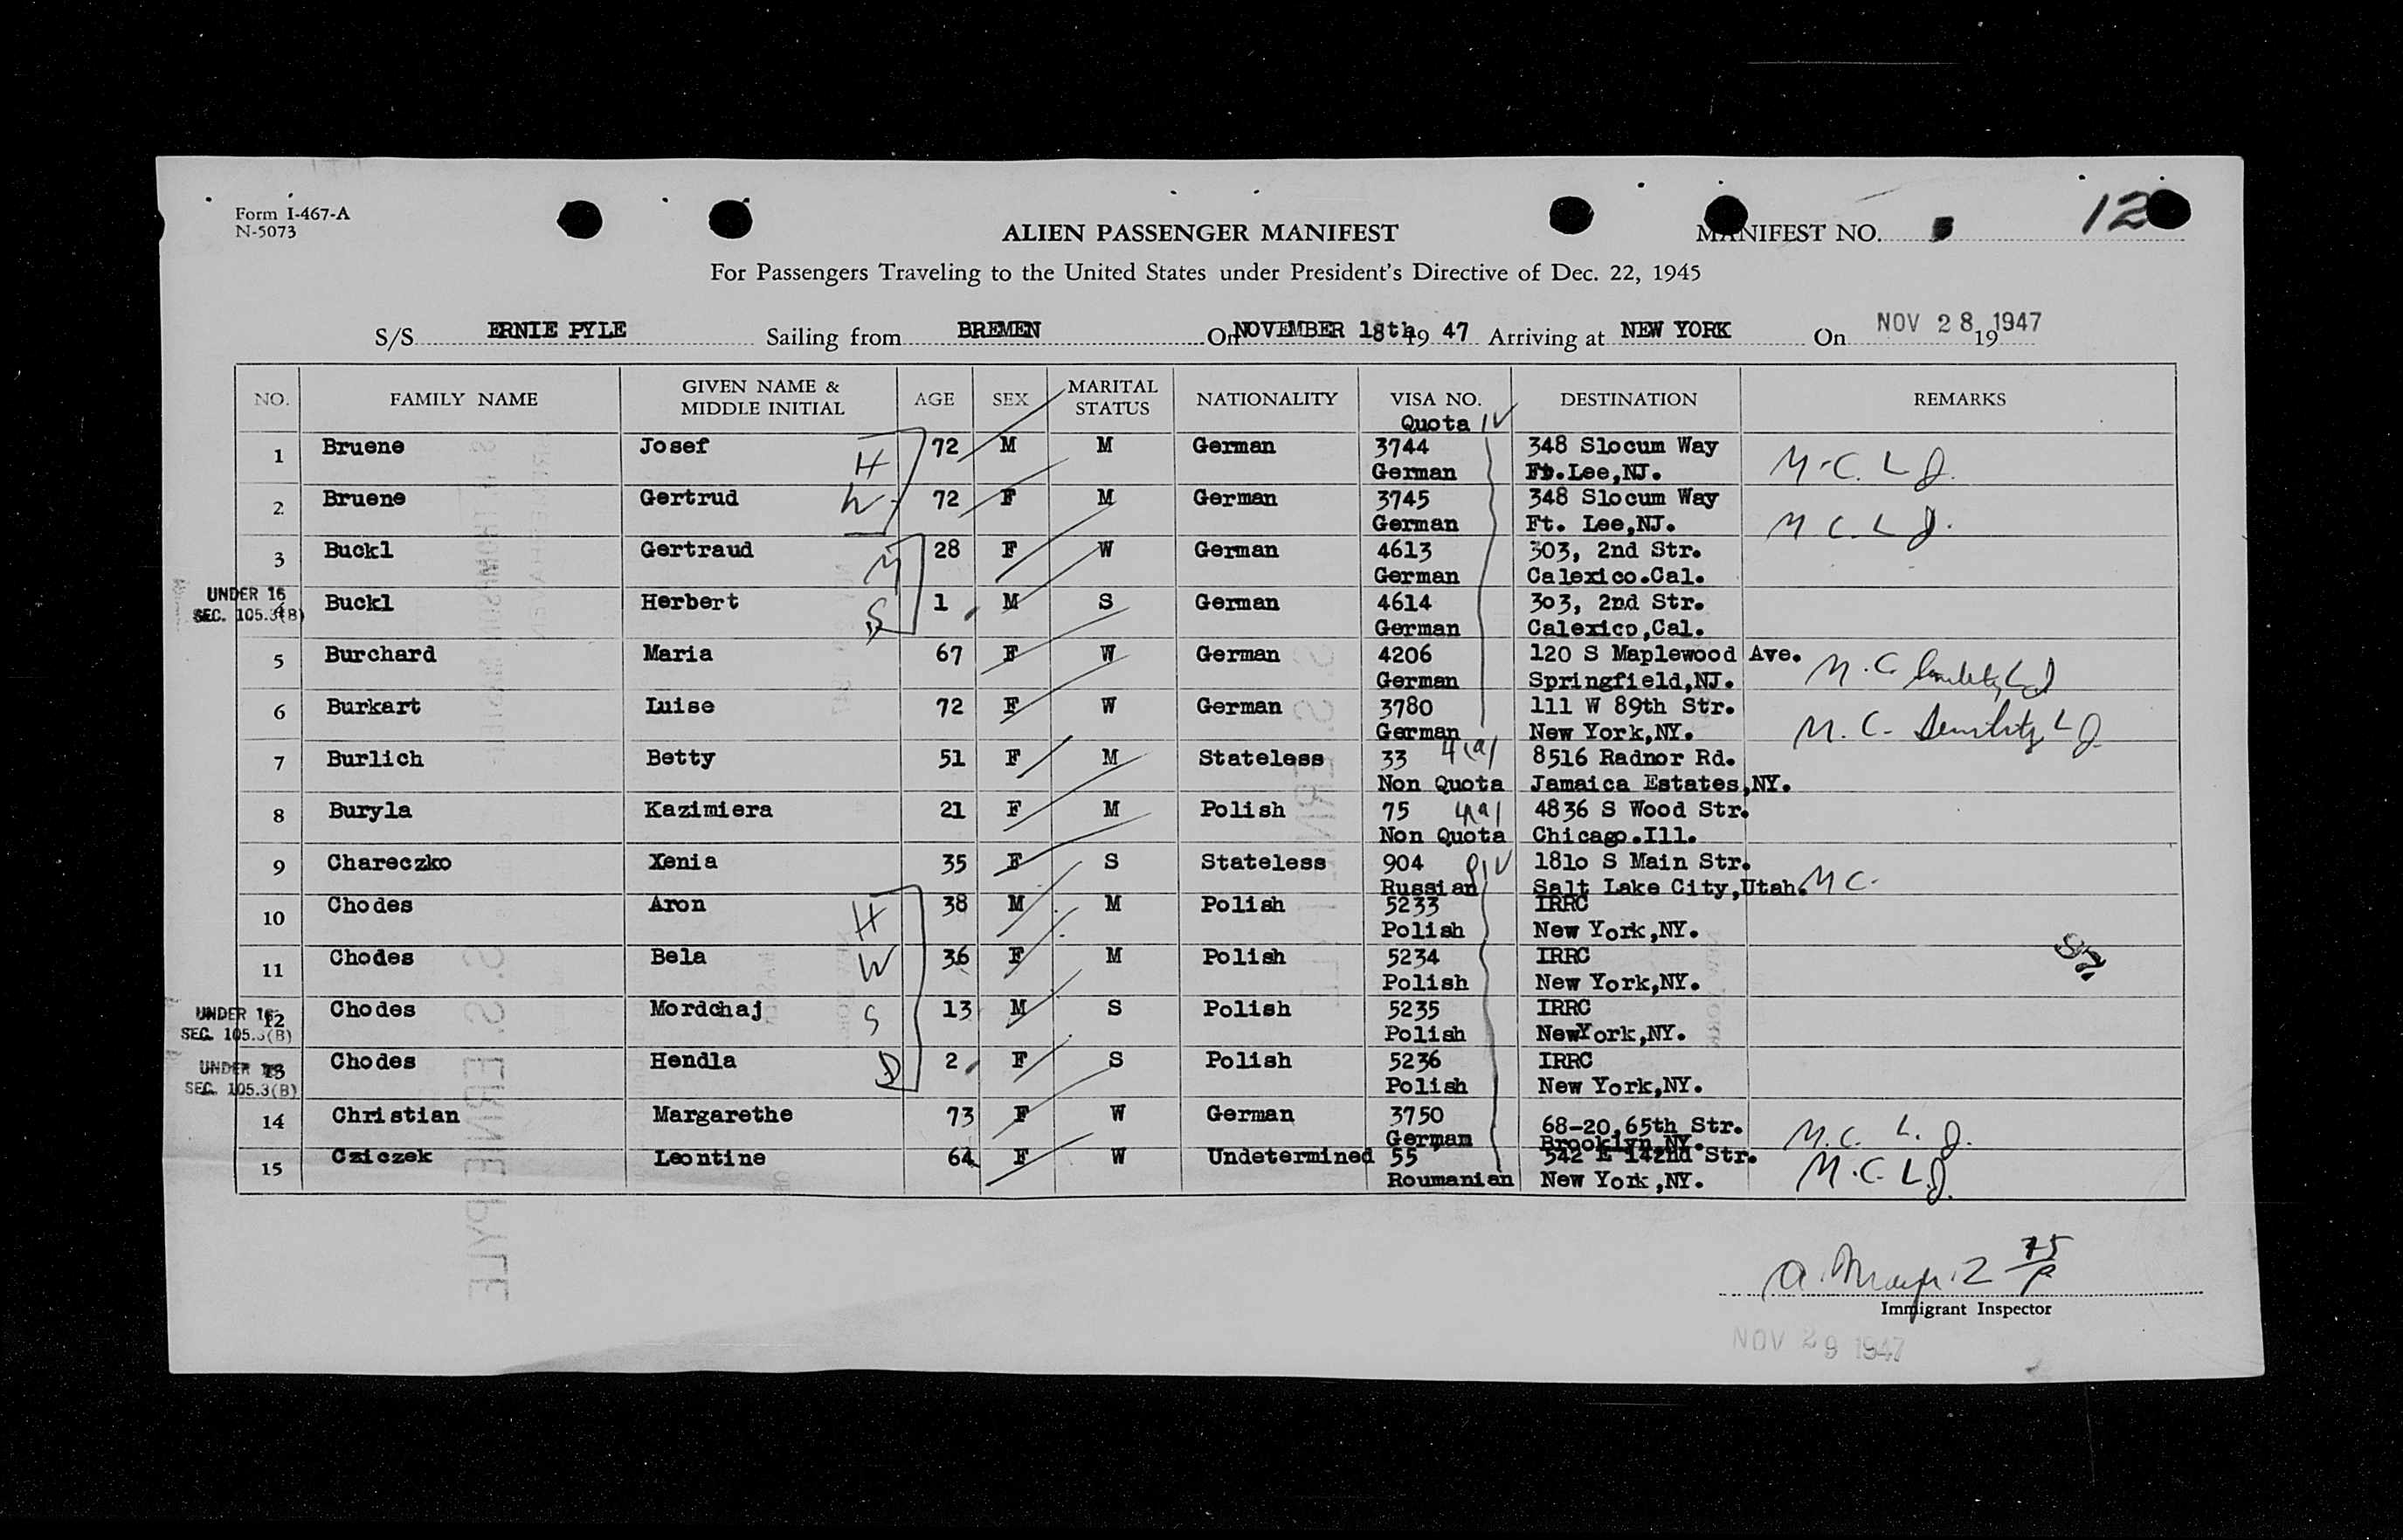 Form I-467-A
N-5073
12
ALIEN PASSENGER MANIFEST
MANIFEST NO.
For Passengers Traveling to the United States under President's Directive of Dec. 22, 1945
S/S ERNIE PYLE Sailing from BREMEN On NOVEMBER 18th 19 47 Arriving at NEW YORK On NOV 28 1947 19
NO. FAMILY NAME GIVEN NAME & MIDDLE INITIAL AGE SEX MARITAL STATUS NATIONALITY VISA NO. DESTINATION REMARKS
Quota IV
1 Bruene Josef H 72 M M German 3744 348 Slocum Way M.C. L J.
German Ft.Lee,NJ.
2 Bruene Gertrud W 72 F M German 3745 348 Slocum Way M C. L J.
German Ft. Lee,NJ.
3 Buckl Gertraud M 28 F W German 4613 303, 2nd Str.
German Calexico.Cal.
UNDER 16
SEC. 105.3(B)
4 Buckl Herbert S 1 M S German 4614 303, 2nd Str.
German Calexico,Cal.
5 Burchard Maria 67 F W German 4206 120 S Maplewood Ave. M.C Senility, L J
German Springfield,NJ.
6 Burkart Luise 72 F W German 3780 111 W 89th Str. M.C. Senility L J
German New York,NY.
7 Burlich Betty 51 F M Stateless 33 4(a) 8516 Radnor Rd.
Non Quota Jamaica Estates,NY.
8 Buryla Kazimiera 21 F M Polish 75 4(a) 4836 S Wood Str.
Non Quota Chicago.Ill.
9 Chareczko Xenia 35 F S Stateless 904 1810 S Main Str.
Russian Salt Lake City,Utah. M C.
10 Chodes Aron H 38 M M Polish 5233 IRRC
Polish New York,NY.
11 Chodes Bela W 36 F M Polish 5234 IRRC
Polish New York,NY.
UNDER 16
SEC. 105.3(B)
12 Chodes Mordchaj S 13 M S Polish 5235 IRRC
Polish NewYork,NY.
UNDER 16
SEC. 105.3(B)
13 Chodes Hendla D 2 F S Polish 5236 IRRC
Polish New York,NY.
14 Christian Margarethe 73 F W German 3750 68-20,65th Str. M.C. L. J.
German Brooklyn,NY.
15 Cziczek Leontine 64 F W Undetermined 55 542 E 142nd Str. M.C. L J.
Roumanian New York,NY.
Immigrant Inspector
NOV 29 1947